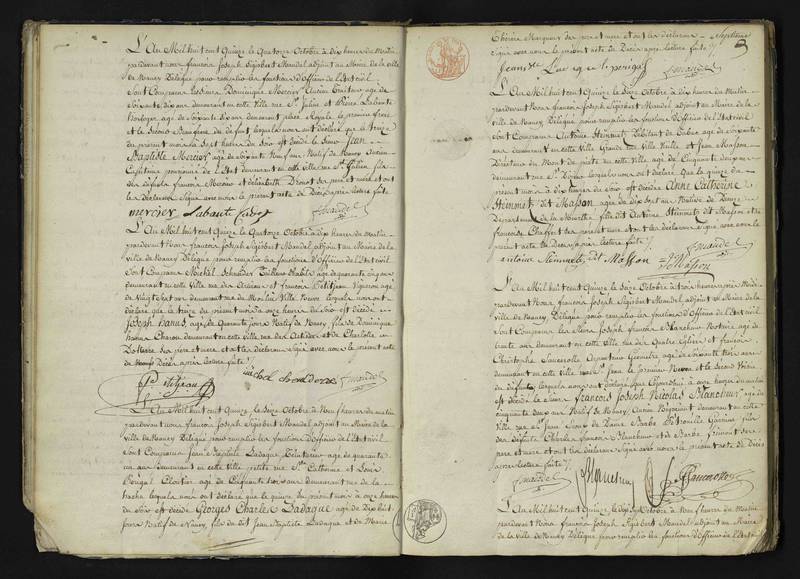 L'An Mil huit cent Quinze le Quatorze Octobre à dix heures du Matin
pardevant Nous françois Joseph Sigisbert Mandel adjoint au Maire de la ville
de Nancy Délégué pour remplir les fonctions d'Officier de l'Etat civil
Sont Comparus Dominique Mercier ancien age de
Soixante dix ans demeurant en cette Ville rue St Julien et Pierre Labaute
horloger age de Soixante dix ans demeurant place Royale, le premier frere
et le Second Beaufrere du defunt, lesquels nous ont déclaré que le treize
du present mois à Sept heures du Soir est décédé le Sieur Jean
Baptiste Mercier age de Soixante Neuf ans Natif de Nancy ancien
Capitaine pensionné de l'Etat demeurant en cette ville rue St Julien fils
des défunts françois Mercier et élisabeth ses pere et mere et ont
les declarans signé avec nous le présent acte de Décès après lecture faite
mercier Labaute fmandel
L'An Mil huit cent Quinze le Quatorze Octobre à dix heures du Matin
pardevant Nous françois Joseph Sigisbert Mandel adjoint au Maire de la
ville de Nancy Délégué pour remplir les fonctions d'Officier de l'Etat civil
Sont Comparus Michel Schneider Tailleur d'habits age de quarante cinq ans
demeurant en cette Ville rue des Artisans et françois Petitjean Vigneron age
de Vingt Sept ans demeurant rue du Moulin Ville Neuve lesquels nous ont
déclaré que le treize du présent mois à onze heures du Soir est décédé
Joseph Hanus, age de Quarante jours Natif de Nancy, fils de Dominique
hanus Charon demeurant en cette ville rue des Artisans et de Charlotte
ses pere et mere et ont les declarans signé avec nous le présent acte
de Décès après lecture faite
Petitjean michel fmandel
L'An Mil huit cent Quinze, le Seize Octobre à Neuf heures du matin
pardevant nous françois Joseph Sigisbert Mandel adjoint au Maire de la
ville de Nancy Délégué pour remplir les fonctions d'Officier de l'Etat civil
Sont Comparus Jean Baptiste Ladague Teinturier age de quarante
ans demeurant en cette ville petite rue Ste Catherine et Louis
Cloutier age de Cinquante trois ans demeurant rue de la
hache lesquels nous ont déclaré que le quinze du présent mois à onze heures
du Soir est décédé Georges Charles Ladague age de Dix huit
jours Natif de Nancy, fils du dit Jean Baptiste Ladague et de Marie
Thérèse Marqueur ses pere et mere et ont les declarans
signé avec nous le présent acte de Décès après lecture faite
Jeanbte fmandel
L'An Mil huit cent Quinze, le Seize Octobre à dix heures du Matin
pardevant Nous françois Joseph Sigisbert Mandel adjoint au Maire de la
ville de Nancy Délégué pour remplir les fonctions d'Officier de l'Etat civil
Sont Comparus Antoine Steinmetz Débitant de Tabac age de Soixante
ans demeurant en cette Ville Grande rue Ville Vieille et Jean Masson
Directeur du Mont de piété en cette Ville age de Cinquante deux ans
demeurant rue St lesquels nous ont déclaré Que le quinze du
présent mois à dix heures du Soir est décédée Anne Catherine
Steinmetz dit Masson agée de dix Sept ans Native de
Département de la Meurthe fille dit Antoine Steinmetz dit Masson et de
françoise ses pere et mere et ont les declarans signé avec nous le
présent acte de Décès après lecture faite
antoine Steinmetz dit Masson fmandel
JMasson
L'An Mil huit cent Quinze le Seize Octobre à trois heures après Midi
pardevant Nous françois Joseph Sigisbert Mandel adjoint au Maire de la
ville de Nancy Délégué pour remplir les fonctions d'Officier de l'Etat civil
Sont Comparus les Sieurs Joseph françois Blancheur Notaire age de
trente ans demeurant en cette Ville rue des Quatre Eglises et françois
Christophe Saucerotte Géometre age de Soixante trois ans
demeurant en cette Ville le premier Neveu et le Second
du défunt, lesquels nous ont déclaré Que aujourd'hui à onze heures du matin
est décédé le Sieur François Joseph Nicolas Blancheur age de
cinquante deux ans Natif de Nancy ancien Négociant demeurant en cette
Ville rue St Jean Epoux de Dame Barbe Pétronille fils
des défunts Charles françois Blancheur et de Barbe ses
pere et mere et ont les declarans signé avec nous le présent acte de Décès
après lecture faite
fmandel Blancheur Saucerotte
L'An Mil huit cent Quinze, le dix Sept Octobre à Neuf heures du Matin
pardevant Nous françois Joseph Sigisbert Mandel adjoint au Maire
de la Ville de Nancy Délégué pour remplir les fonctions d'Officier de l'Etat